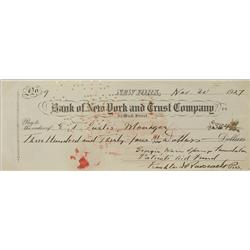 No 9 NEW YORK, Nov. 1927
Bank of New York and Trust Company
52 Wall Street
Pay to
the order of Manager $334
Three Hundred and Thirty four Dollars
Georgia Warm Springs Foundation
Patients Aid Fund
Franklin D Roosevelt